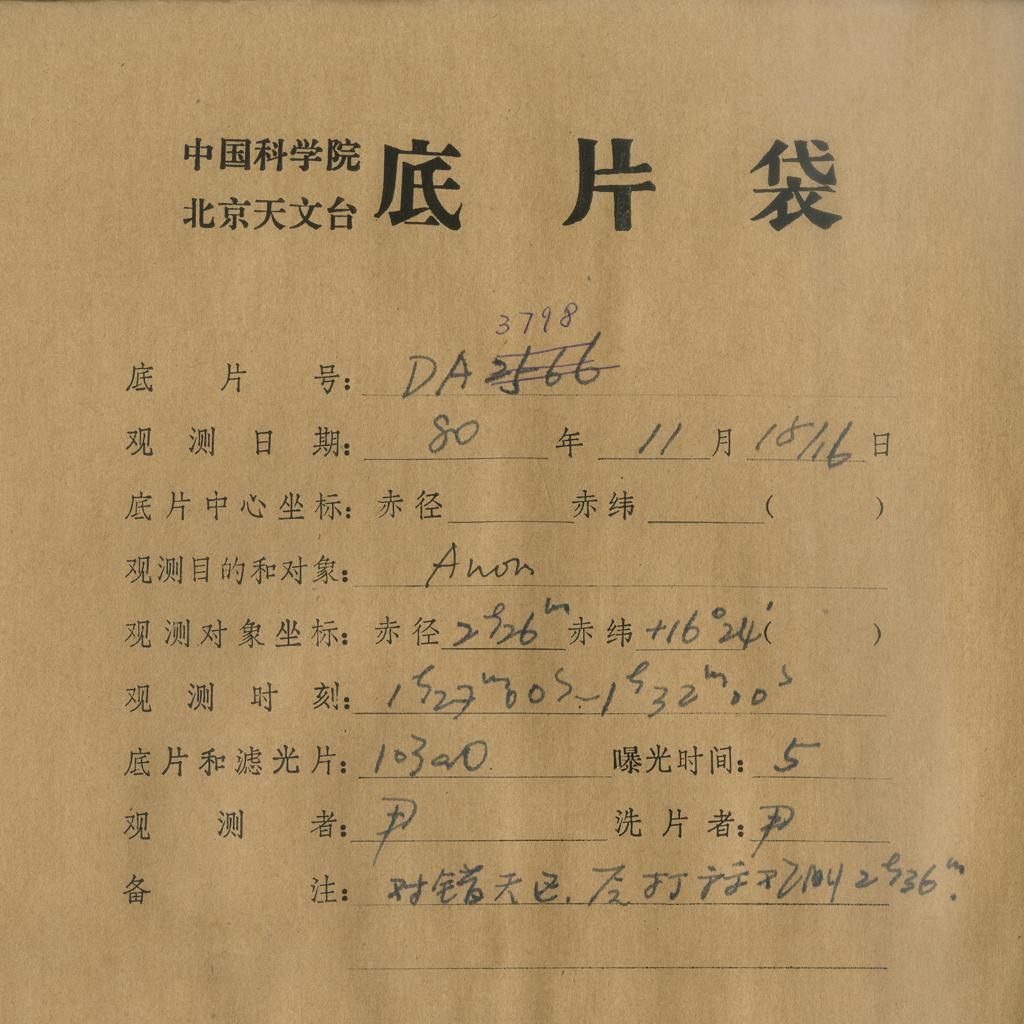 中国科学院
北京天文台
底片袋
3798
底片号: DA 2566
观测日期: 80 年 11 月 15/16 日
底片中心坐标: 赤径 赤纬 ( )
观测目的和对象: Anon
观测对象坐标: 赤径 2h26m 赤纬 +16°24′ ( )
观测时刻: 1h27m00s-1h32m00s
底片和滤光片: 103aO 曝光时间: 5
观测者: 尹 洗片者: 尹
备注: 对错天区. 2h36m.